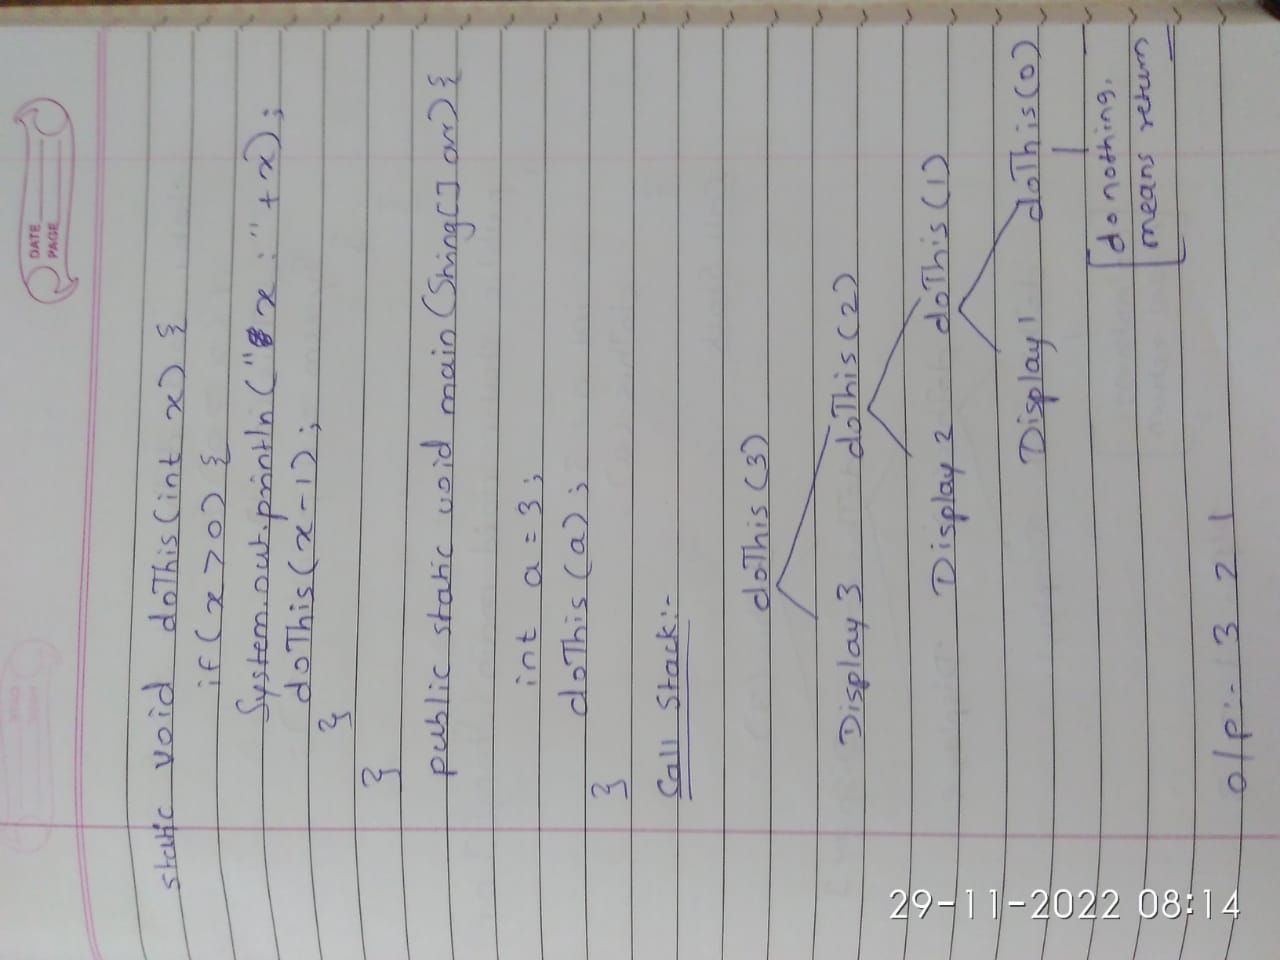 DATE
PAGE
static void doThis(int x) {
if(x>0) {
System.out.println("x :"+x);
doThis(x-1);
}
}
public static void main(String[] arr){
int a=3;
doThis(a);
}
Call Stack:-
doThis(3)
Display 3 doThis(2)
Display 2 doThis(1)
Display 1 doThis(0)
do nothing.
means return
o/p:- 3 2 1
29-11-2022 08:14